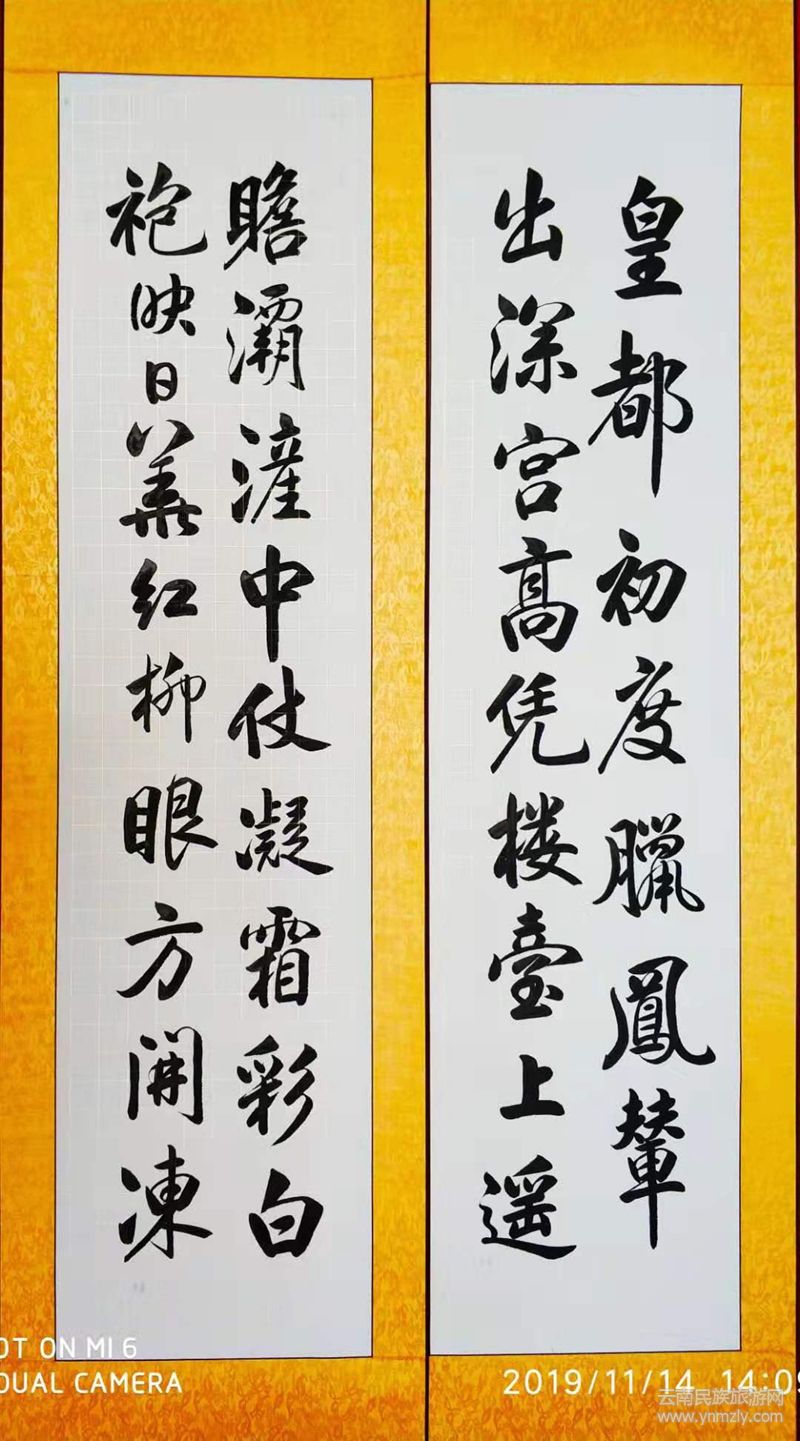 皇都初度臘鳳輦
出深宮高凭楼臺上遥
瞻灞滻中仗凝霜彩白
袍映日華紅柳眼方開凍
OT ON MI 6
DUAL CAMERA
2019/11/14 14:09
云南民族旅游网
www.ynmzly.com